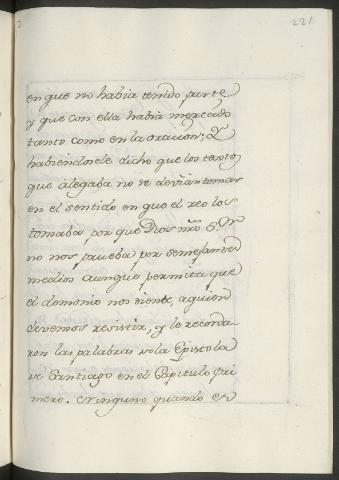 221
en que no habia tenido parte
y que con ella habia merecido
tanto como en la oracion; Y
habiendosele dicho que los textos
que alegaba no se devian tomar
en el sentido en que el reo los
tomaba por que Dios nrô S.or
no nos prueba por semejantes
medios aunque permita que
el demonio nos tiente, a quien
devemos resistir, y le recorda-
ron las palabras de la Epistola
de Santiago en el Capitulo pri
mero. Ninguno quando es